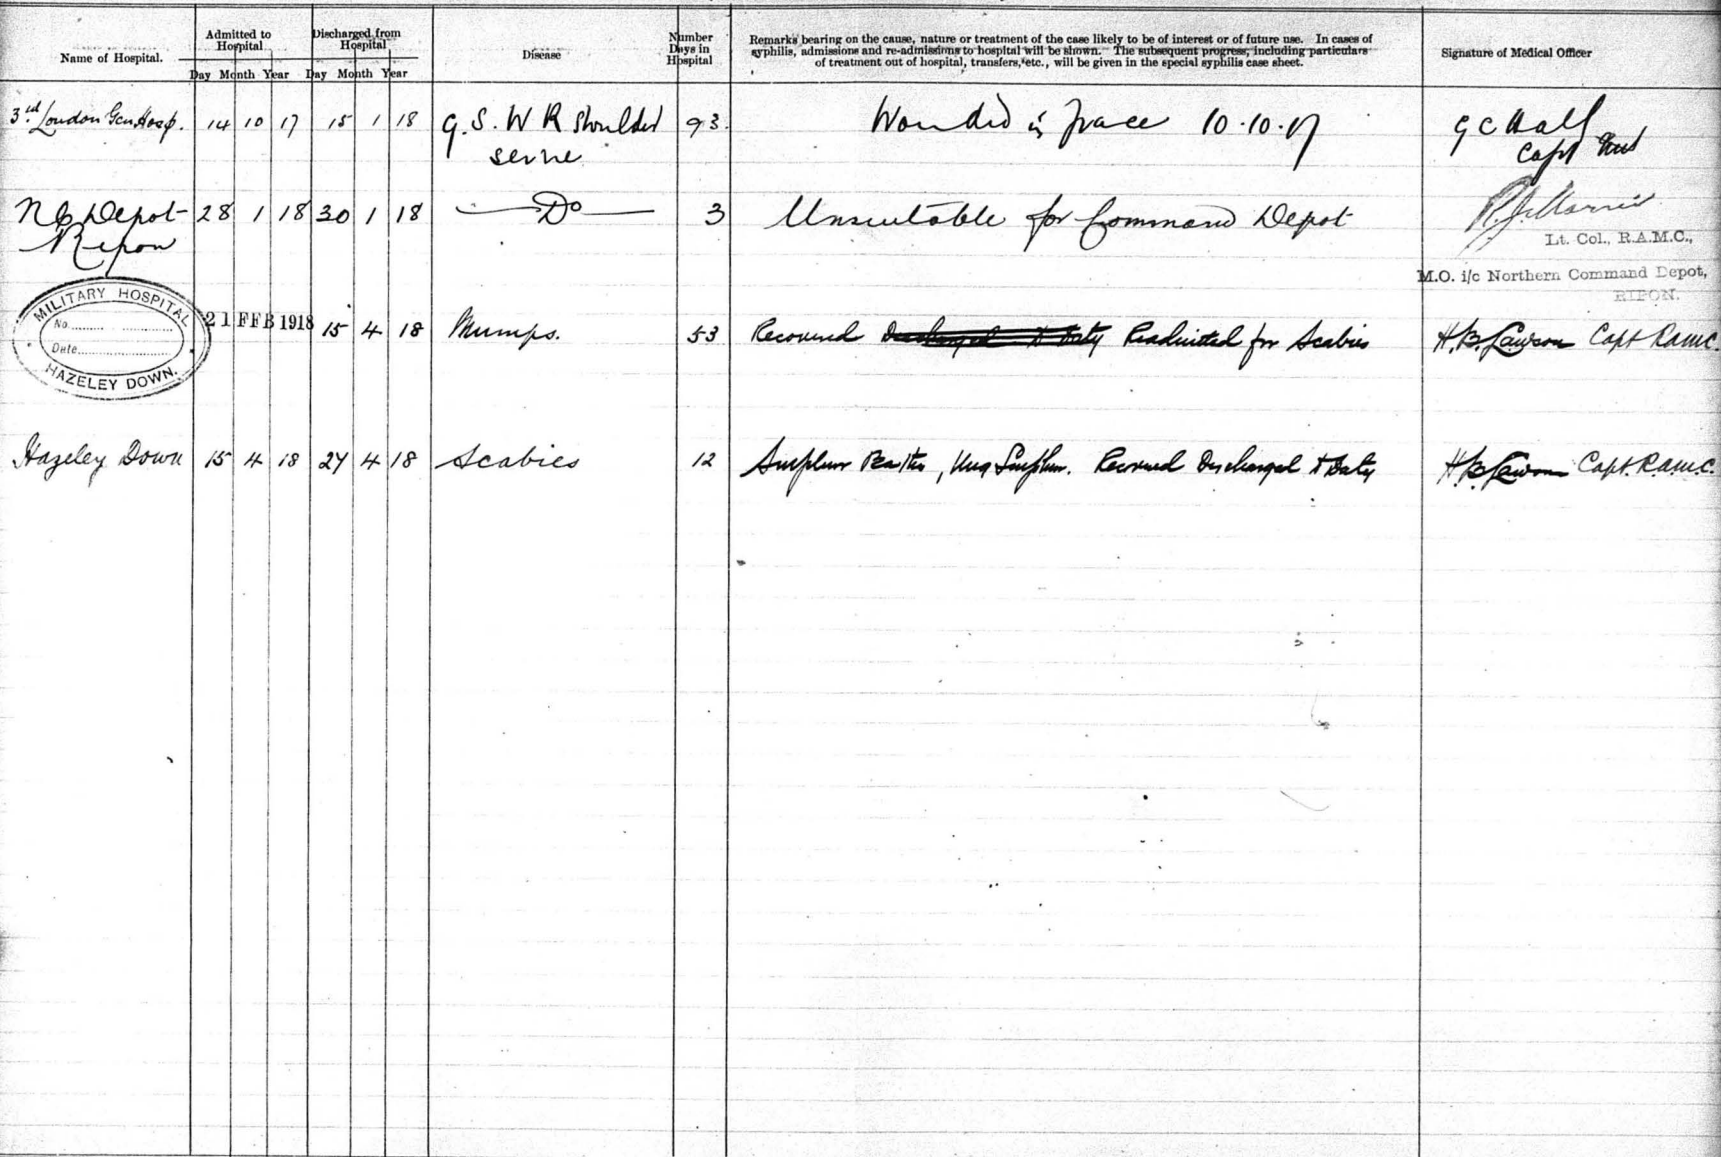 Name of Hospital. Admitted to Hospital Discharged from Hospital Disease Number Days in Hospital Remarks bearing on the cause, nature or treatment of the case likely to be of interest or of future use. In cases of syphilis, admissions and re-admissions to hospital will be shown. The subsequent progress, including particulars of treatment out of hospital, transfers, etc., will be given in the special syphilis case sheet. Signature of Medical Officer
Day Month Year Day Month Year
3rd London Gen Hosp. 14 10 17 15 1 18 G. S. W R Shoulder 93. Wounded in France 10.10.17 G C Hall
Capt
N C Depot 28 1 18 30 1 18 Do 3 Unsuitable for Command Depot
Ripon
Lt. Col., R.A.M.C.,
M.O. i/c Northern Command Depot,
RIPON.
MILITARY HOSPITAL
No.
Date
HAZELEY DOWN.
21 FEB 1918 15 4 18 Mumps. 53 Recovered Discharged to Duty Readmitted for Scabies H.B. Lawson Capt RAMC.
Hazeley Down 15 4 18 27 4 18 Scabies 12 Sulphur Baths, Ung Sulphur. Recovered Discharged to Duty H.B. Lawson Capt. R.A.M.C.